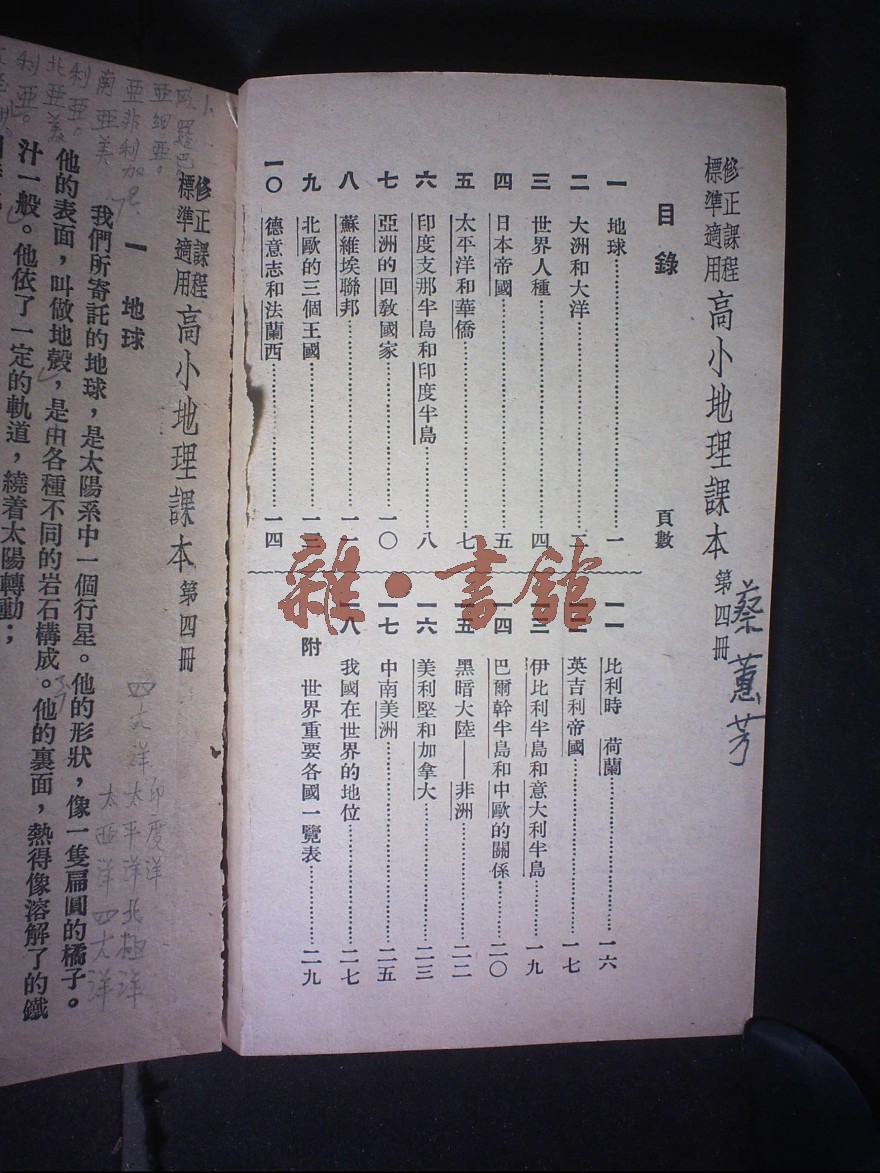 修正課程標準適用 高小地理課本 第四冊
蔡蕙芳
目錄 頁數
一 地球 一
二 大洲和大洋 二
三 世界人種 四
四 日本帝國 五
五 太平洋和華僑 七
六 印度支那半島和印度半島 八
七 亞洲的回教國家 一〇
八 蘇維埃聯邦 一一
九 北歐的三個王國 一三
一〇 德意志和法蘭西 一四
一一 比利時 荷蘭 一六
一二 英吉利帝國 一七
一三 伊比利半島和意大利半島 一九
一四 巴爾幹半島和中歐的關係 二〇
一五 黑暗大陸——非洲 二二
一六 美利堅和加拿大 二三
一七 中南美洲 二五
一八 我國在世界的地位 二七
附 世界重要各國一覽表 二九
雜·書館
修正課程標準適用 高小地理課本 第四冊
一 地球
我們所寄託的地球,是太陽系中一個行星。他的形狀,像一隻扁圓的橘子。
他的表面,叫做地殼,是由各種不同的岩石構成。他的裏面,熱得像溶解了的鐵
汁一般。他依了一定的軌道,繞着太陽轉動;
歐羅巴
亞細亞。
亞非利加
南亞美
利亞。
北亞美
利亞。
四大洋
印度洋
太平洋北極洋
太西洋四大洋